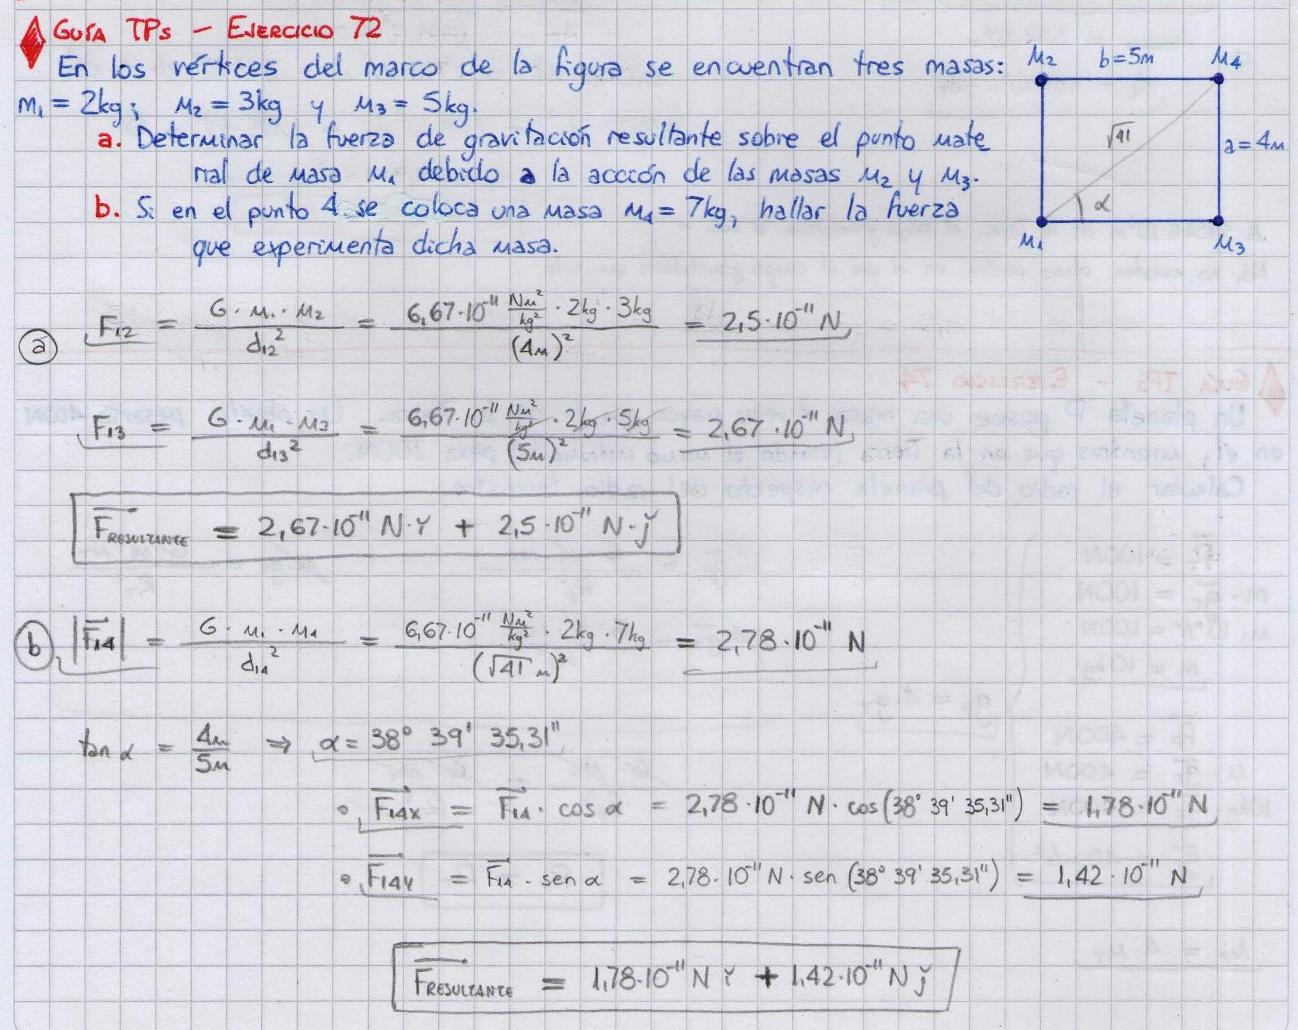 GUÍA TPs – EJERCICIO 72
En los vértices del marco de la figura se encuentran tres masas:
m₁ = 2kg; M₂ = 3kg y M₃ = 5kg.
a. Determinar la fuerza de gravitación resultante sobre el punto mate
rial de masa M₁ debido a la acción de las masas M₂ y M₃.
b. Si en el punto 4 se coloca una masa M₄ = 7kg, hallar la fuerza
que experimenta dicha masa.
M₂ b=5m M₄
√41
a=4m
α
M₁ M₃
a
F₁₂ = G · m₁ · M₂ / d₁₂² = 6,67·10⁻¹¹ Nm²/kg² · 2kg · 3kg / (4m)² = 2,5·10⁻¹¹ N
F₁₃ = G · m₁ · M₃ / d₁₃² = 6,67·10⁻¹¹ Nm²/kg² · 2kg · 5kg / (5m)² = 2,67·10⁻¹¹ N
F RESULTANTE = 2,67·10⁻¹¹ N·ĭ + 2,5·10⁻¹¹ N·ǰ
b
|F₁₄| = G · m₁ · M₄ / d₁₄² = 6,67·10⁻¹¹ Nm²/kg² · 2kg · 7kg / (√41 m)² = 2,78·10⁻¹¹ N
tan α = 4m / 5m ⇒ α = 38° 39' 35,31"
• F₁₄ₓ = F₁₄ · cos α = 2,78·10⁻¹¹ N · cos (38° 39' 35,31") = 1,78·10⁻¹¹ N
• F₁₄Y = F₁₄ · sen α = 2,78·10⁻¹¹ N · sen (38° 39' 35,31") = 1,42·10⁻¹¹ N
F RESULTANTE = 1,78·10⁻¹¹ N ĭ + 1,42·10⁻¹¹ N ǰ